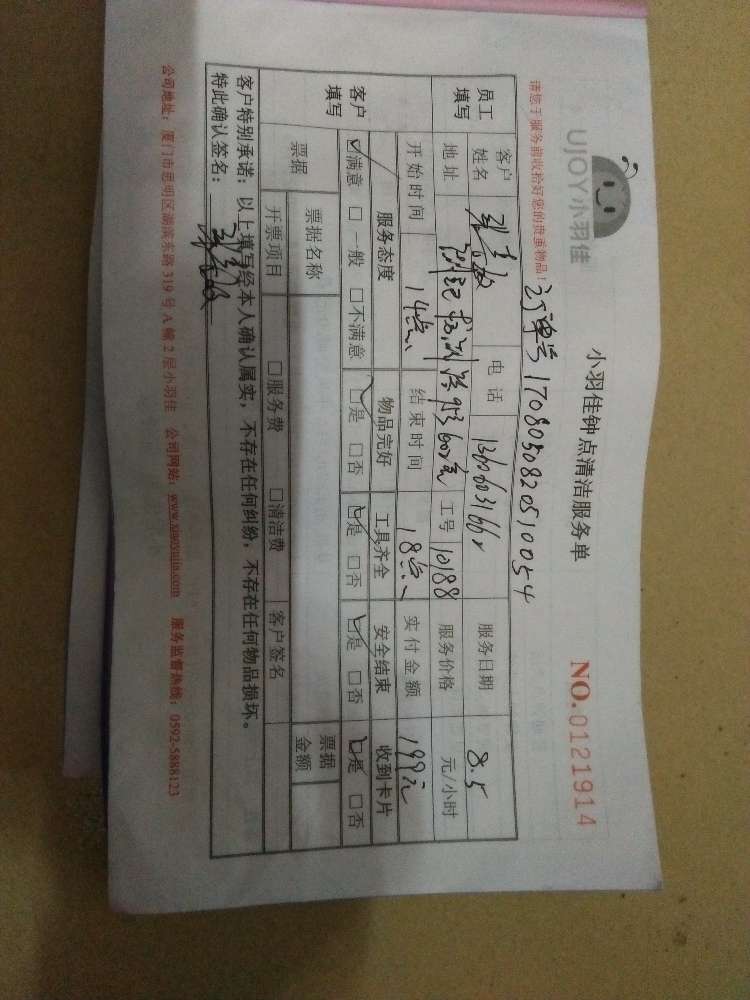 UJOY小羽佳
小羽佳钟点清洁服务单
NO.0121914
请您于服务前收拾好您的贵重物品!
订单号1708050820510054
员工填写
客户姓名 电话 服务日期 8.5
地址 工号 10188 服务价格 元/小时
开始时间 14点 结束时间 18点 实付金额 199元
客户填写
服务态度 物品完好 工具齐全 安全结束 收到卡片
☑满意 □一般 □不满意 ☑是 □否 ☑是 □否 ☑是 □否 ☑是 □否
票据 票据名称 票据金额
开票项目 □服务费 □清洁费 客户签名
客户特别承诺:以上填写经本人确认属实,不存在任何纠纷,不存在任何物品损坏。
特此确认签名:
公司地址:厦门市思明区湖滨东路319号A幢2层小羽佳 公司网站:www.xiaoyujia.com 服务监督热线:0592-5888123